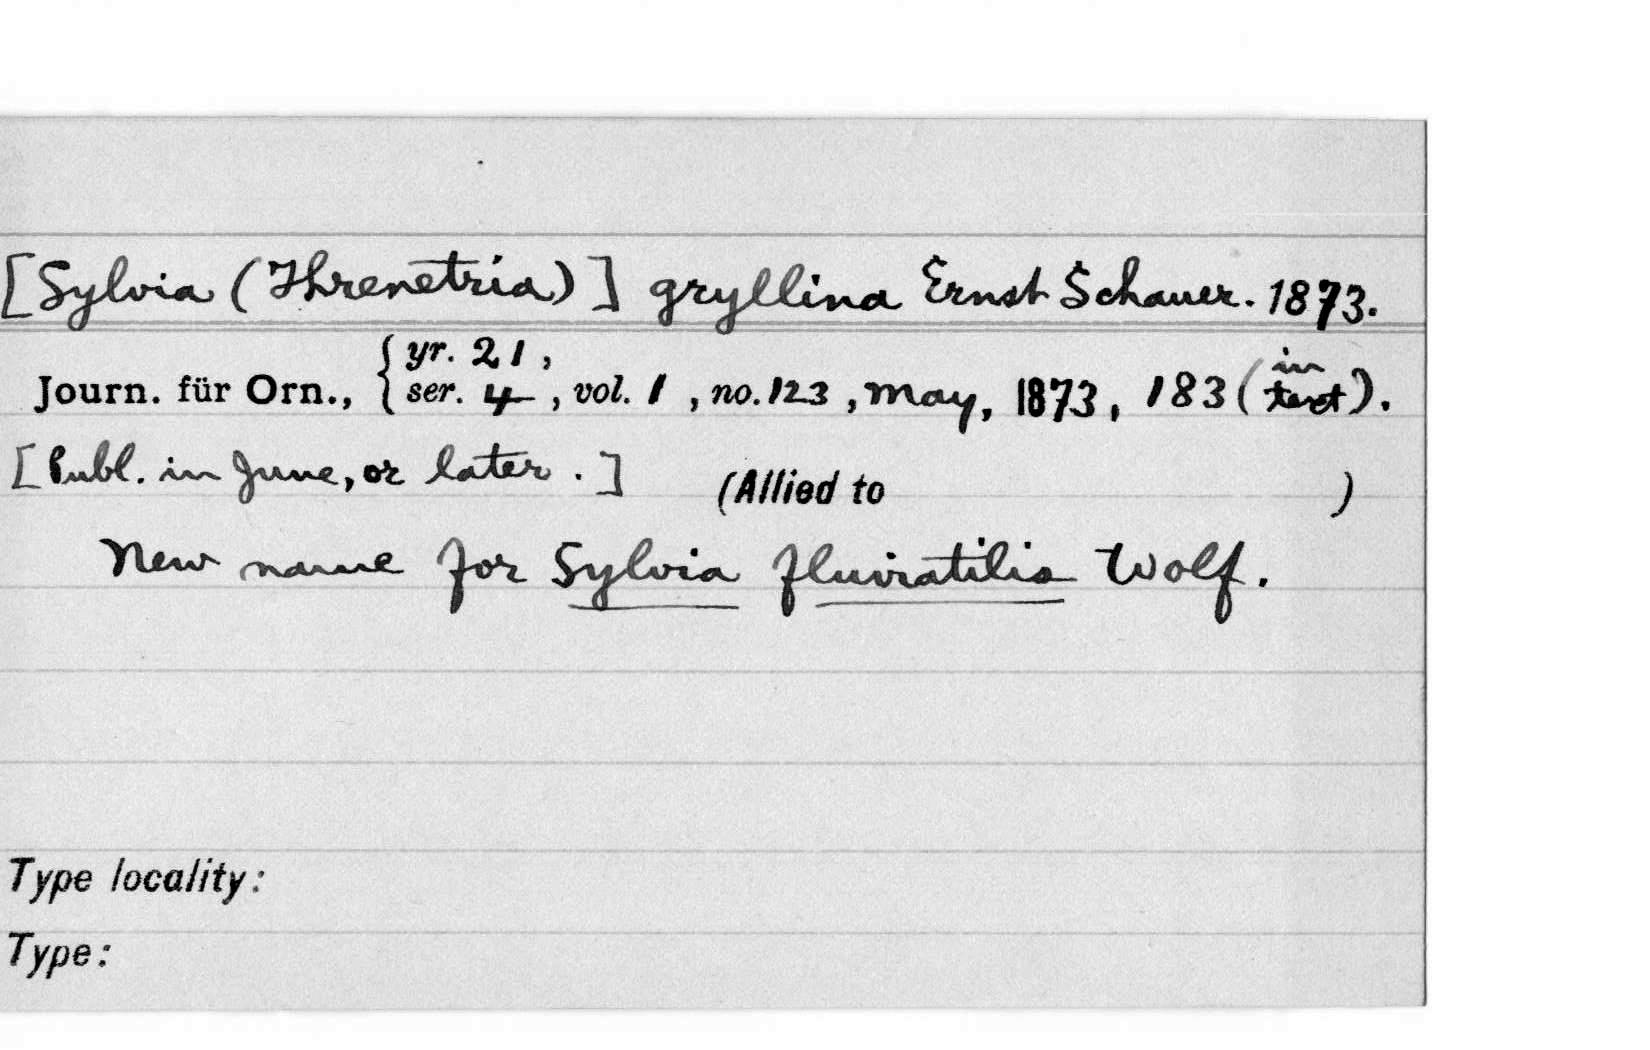 [Sylvia (Threnetria)] gryllina Ernst Schauer. 1873.
Journ. für Orn., { yr. 21, ser. 4, vol. 1, no. 123, May, 1873, 183 (in text).
[Publ. in June, or later.] (Allied to )
New name for Sylvia fluviatilis Wolf.
Type locality:
Type: